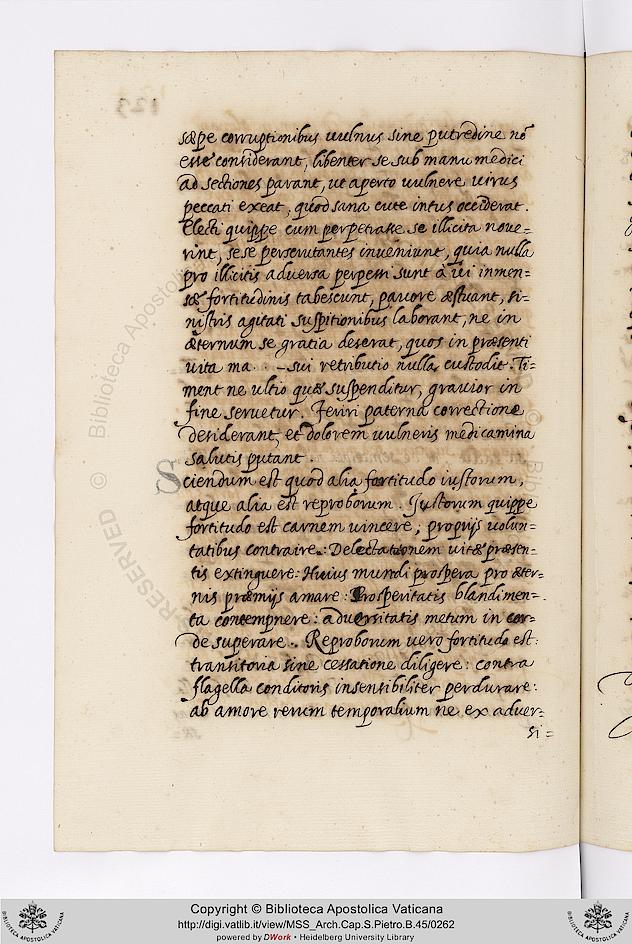 sæpe corruptionibus vulnus sine putredine nõ
esse considerant, libenter se sub manu medici
ad sectiones parant, ut aperto vulnere virus
peccati exeat, quod sana cute intus occiderat.
Electi quippe cum perpetrasse se illicita nove=
rint, sese perscrutantes inveniunt, quia nulla
pro illicitis adversa perpessi sunt à vi inmen=
sæ fortitudinis tabescunt, pavore æstuant, si=
nistris agitati suspitionibus laborant, ne in
æternum se gratia deserat, quos in præsenti
vita ma . . -sui retributio nulla custodit. Ti=
ment ne ultio quæ suspenditur, gravior in
fine servetur. Feriri paterna correctione
desiderant, et dolorem vulneris medicamina
salutis putant.
Sciendum est quod alia fortitudo iustorum,
atque alia est reproborum. Justorum quippe
fortitudo est carnem vincere, proprijs volun=
tatibus contraire: Delectationem vitæ præsen=
tis extinguere: Huius mundi prospera pro æter=
nis præmijs amare: Prosperitatis blandimen=
ta contempnere: adversitatis metum in cor=
de superare. Reproborum vero fortitudo est:
transitoria sine cessatione diligere: contra
flagella conditoris insensibiliter perdurare:
ab amore rerum temporalium ne ex adver=
si=
Copyright © Biblioteca Apostolica Vaticana
http://digi.vatlib.it/view/MSS_Arch.Cap.S.Pietro.B.45/0262
powered by DWork • Heidelberg University Library